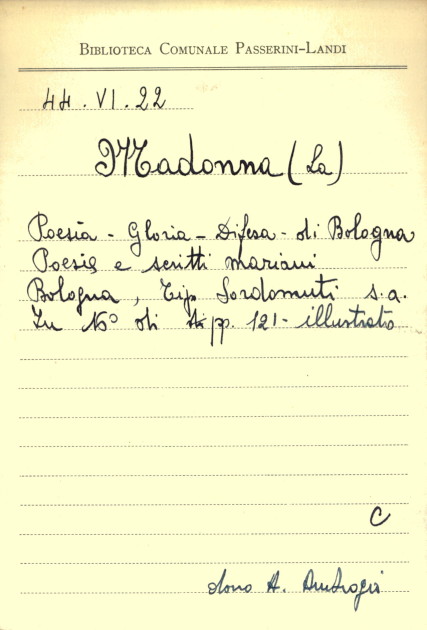 BIBLIOTECA COMUNALE PASSERINI-LANDI
44.VI.22
Madonna (La)
Poesia - Gloria - Difesa - di Bologna
Poesie e scritti mariani
Bologna, Tip. Sordomuti s.a.
In 16° di pp. 121 - illustrato
C
dono A. Ambrogi